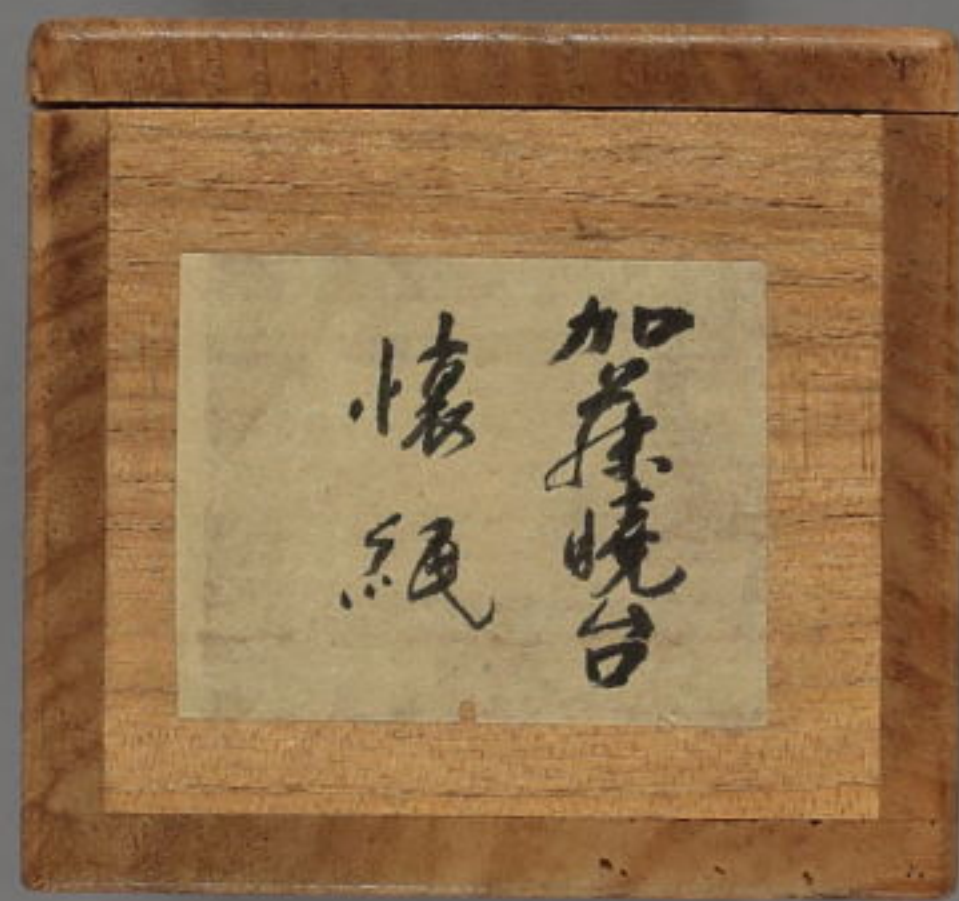 加藤暁台
懐紙